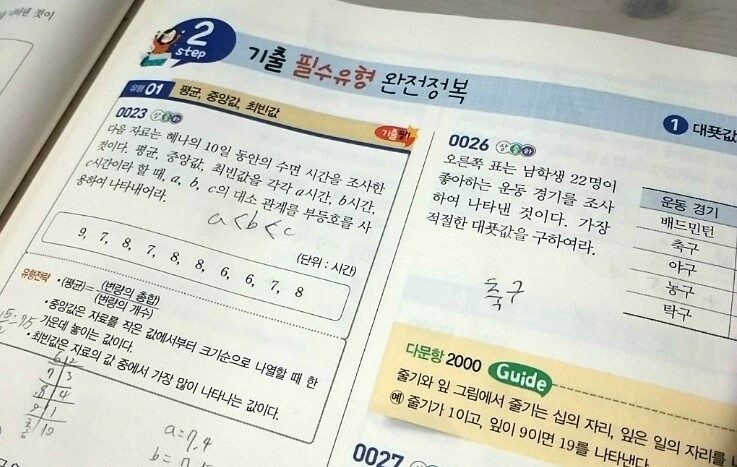 2
step
기출 필수유형 완전정복
유형 01 평균, 중앙값, 최빈값
0023 상중하
기출
다음 자료는 혜나의 10일 동안의 수면 시간을 조사한
것이다. 평균, 중앙값, 최빈값을 각각 a시간, b시간,
c시간이라 할 때, a, b, c의 대소 관계를 부등호를 사
용하여 나타내어라.
a<b<c
9, 7, 8, 7, 8, 8, 6, 6, 7, 8
(단위 : 시간)
유형전략 • (평균)= (변량의 총합)
(변량의 개수)
• 중앙값은 자료를 작은 값에서부터 크기순으로 나열할 때 한
가운데 놓이는 값이다.
• 최빈값은 자료의 값 중에서 가장 많이 나타나는 값이다.
6 2
7 3
8 4
9 1
10
a=7.4
1 대푯값
0026 상중하
오른쪽 표는 남학생 22명이
좋아하는 운동 경기를 조사
하여 나타낸 것이다. 가장
적절한 대푯값을 구하여라.
축구
운동 경기
배드민턴
축구
야구
농구
탁구
다문항 2000 Guide
줄기와 잎 그림에서 줄기는 십의 자리, 잎은 일의 자리를
예 줄기가 1이고, 잎이 9이면 19를 나타낸다.
0027